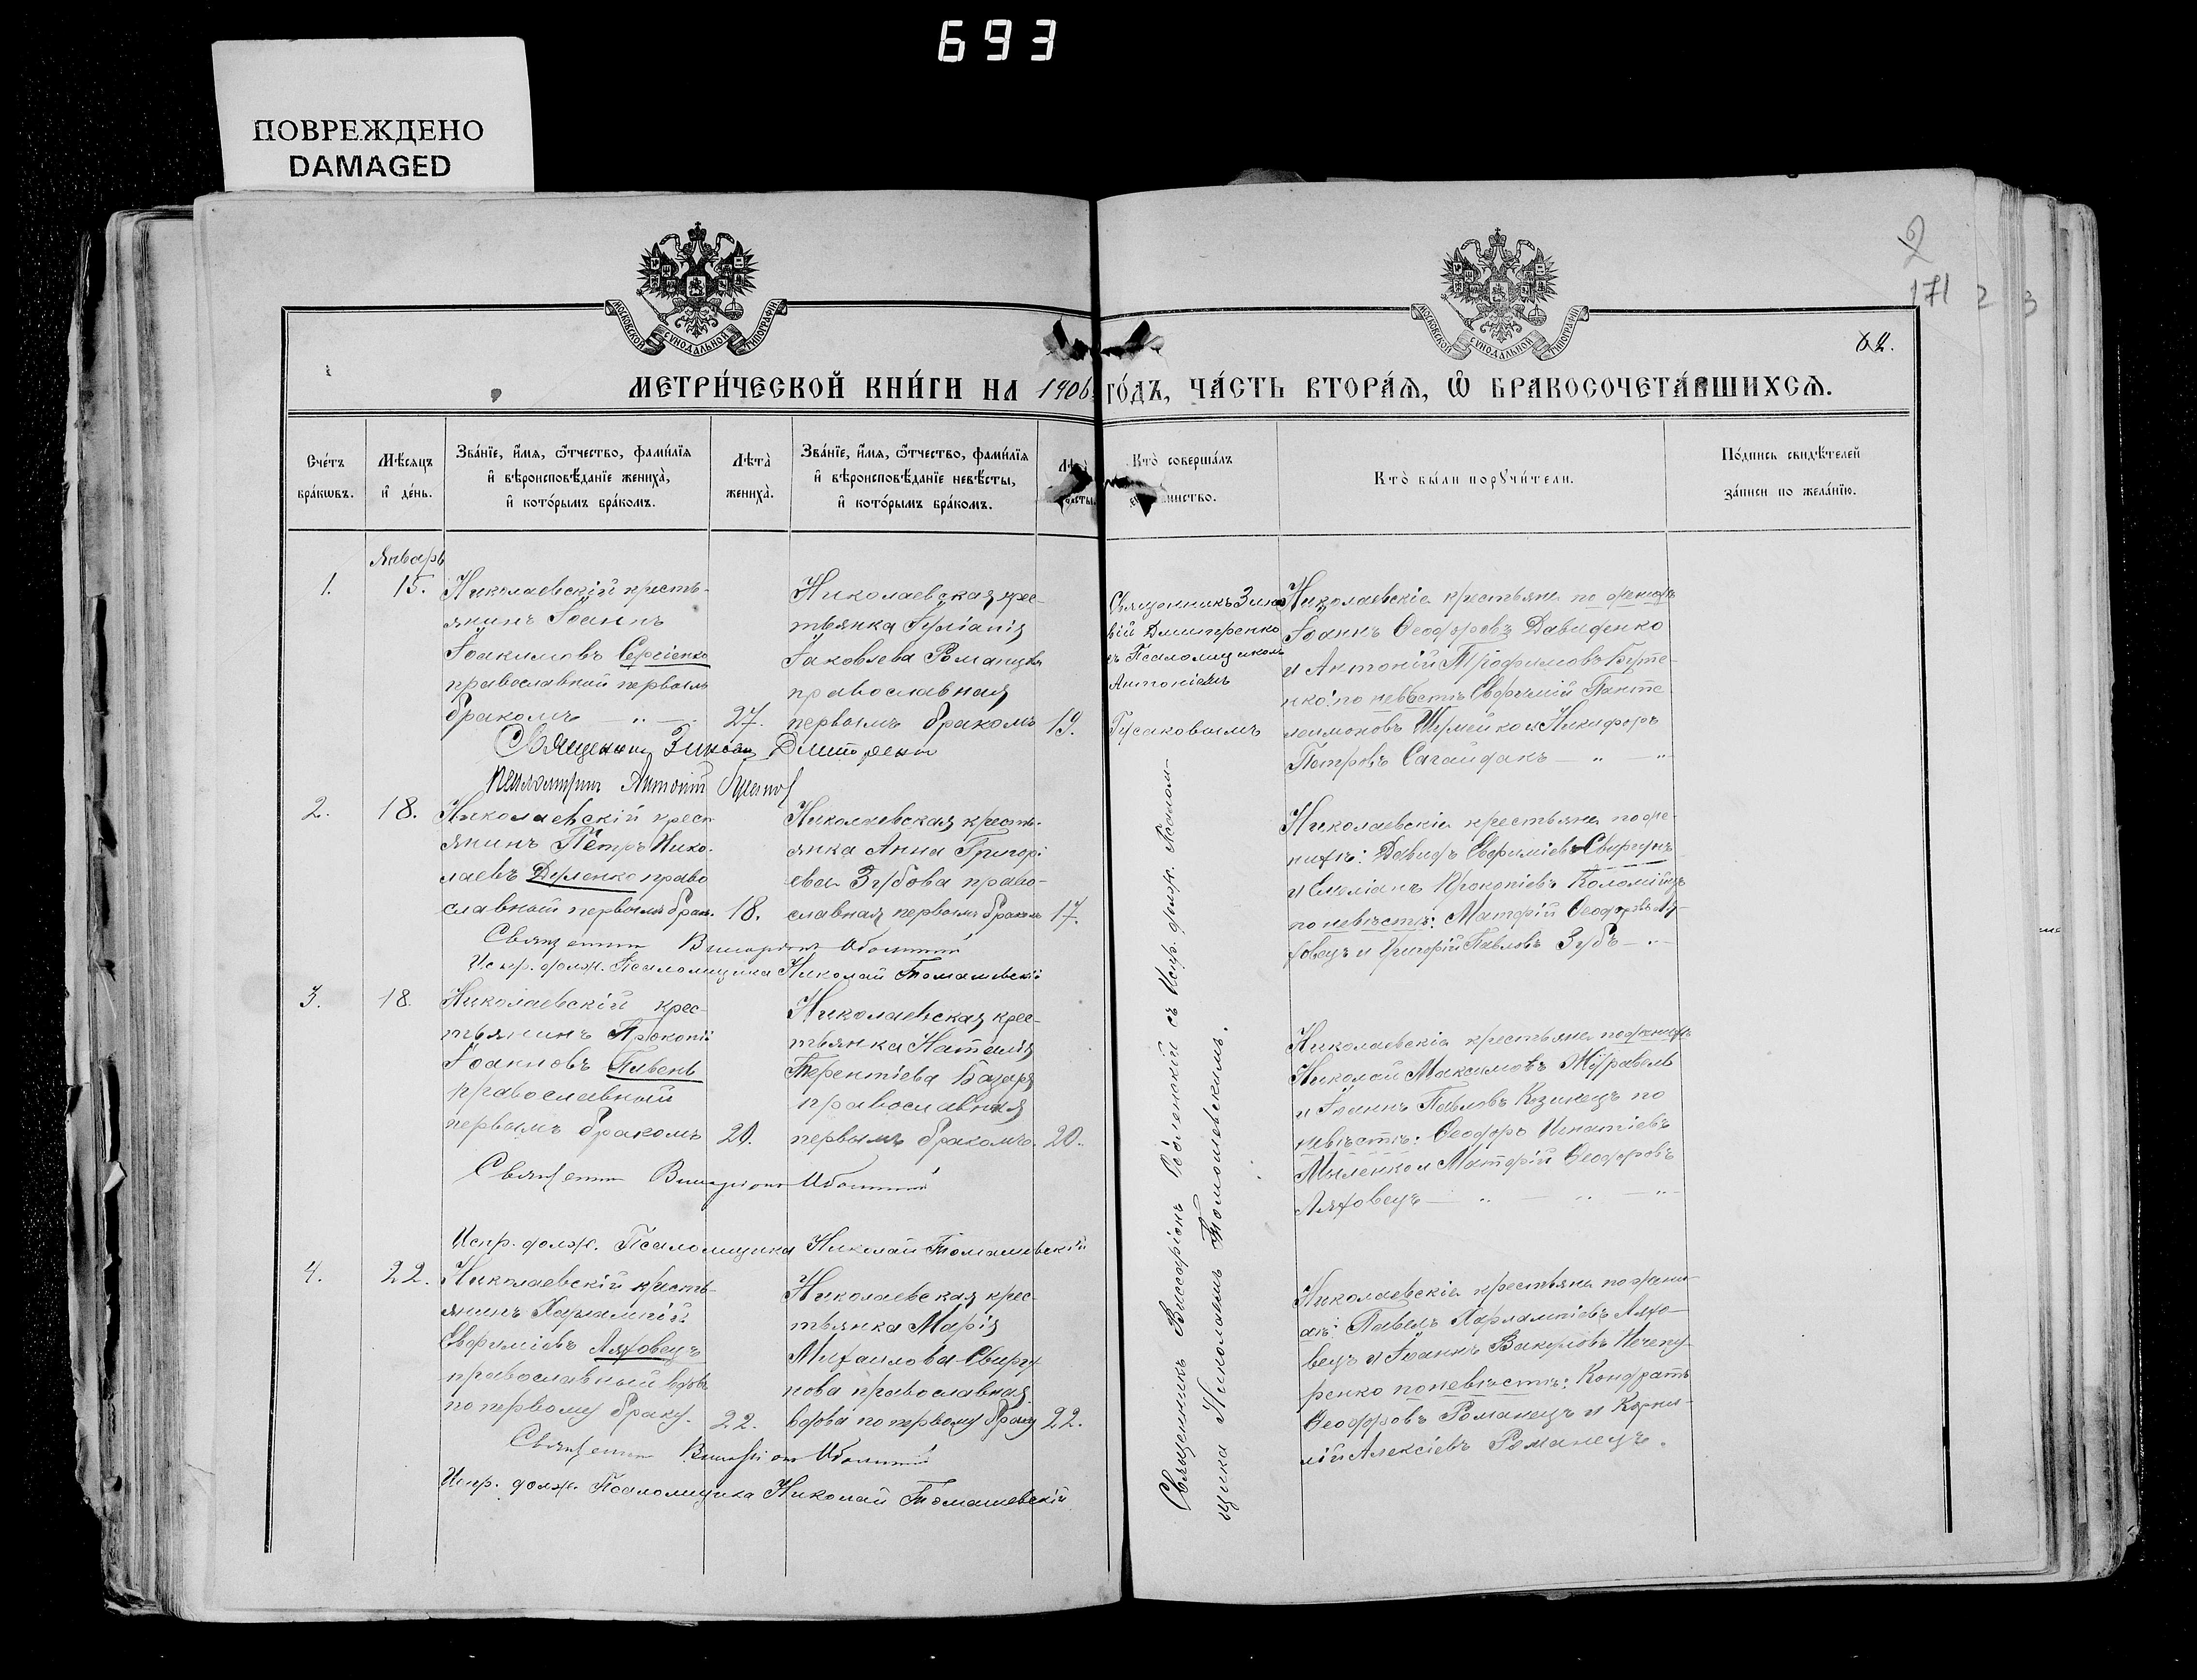 693
ПОВРЕЖДЕНО
DAMAGED
2
171 2 3
МОСКОВСКОЙ СУНОДАЛЬНОЙ ТИПОГРАФІИ
МОСКОВСКОЙ СУНОДАЛЬНОЙ ТИПОГРАФІИ
МЕТРИ́ЧЕСКОЙ КНИ́ГИ НА 1906 ГО́ДЪ, ЧА́СТЬ ВТОРА́Ѧ, Ѿ БРАКОСОЧЕТА́ВШИХСѦ.
Сче́тъ
бра́кѡвъ.
Мѣ́сяцъ
и҆ де́нь.
Зва́нїе, и҆́мѧ, ѻ҆́тчество, фами́лїѧ
и҆ вѣроисповѣ́данїе жениха̀,
и҆ кото́рымъ бра́комъ.
Лѣта̀
жениха̀.
Зва́нїе, и҆́мѧ, ѻ҆́тчество, фами́лїѧ
и҆ вѣроисповѣ́данїе невѣ́сты,
и҆ кото́рымъ бра́комъ.
Кто̀ соверша́лъ
Кто̀ бы́ли порꙋчи́тели.
По́дпись свидѣ́телей
за́писи по жела́нїю.
Январь
1.
15.
Николаевскій кресть-
янинъ Іоаннъ
Іоакимовъ Сергіенко
православный первымъ
бракомъ — „ —
27.
Николаевская крес-
тьянка Іуліанія
Іаковлева Романцева
православная
первымъ бракомъ
19.
Священникъ Зино
вій Дмитренко
съ Псаломщикомъ
Антоніемъ
Гусаковымъ
Николаевскіе крестьяне по женихѣ
Іоаннъ Ѳеодоровъ Давиденко
и Антоній Трофимовъ Буте-
нко: по невѣстѣ Евфимій Панте-
леимоновъ Шумейко и Никифоръ
Петровъ Сагайдакъ — „ — „
Священникъ Зиновій Дмитренко
Псаломщикъ Антоній Гусаковъ
2.
18.
Николаевскій крест
янинъ Петръ Нико-
лаевъ Дуленко право
славный первымъ брак.
18.
Николаевская кресть-
янка Анна Григорі
ева Зубова право-
славная первымъ бракомъ
17.
Николаевскіе крестьяне по же-
нихѣ: Давидъ Евфиміевъ Свиргунъ
и Емеліанъ Прокопіевъ Коломіецъ
по невѣстѣ: Матфій Ѳеодоровъ Ля-
ховецъ и Григорій Павловъ Зубъ — „ —
Священникъ Виссаріонъ
Испр. долж. Псаломщика Николай Томашевскій
3.
18.
Николаевскій крес-
тьянинъ Прокопій
Іоанновъ Пивень
православный
первымъ бракомъ
20.
Николаевская крес-
тьянка Наталія
Терентіева Базаря
православная
первымъ бракомъ.
20.
Николаевскіе крестьяне по женихѣ
Николай Максимовъ Журавель
и Іоаннъ Павловъ Козинецъ по
невѣстѣ: Ѳеодоръ Игнатіевъ
Мыленко и Матфій Ѳеодоровъ
Ляховецъ — „ — „ — „
Священникъ Виссаріонъ
Испр. долж. Псаломщика Николай Томашевскій
4.
22.
Николаевскій кресть-
янинъ Харлампій
Евфиміевъ Ляховецъ
православный вдовъ
по первому браку.
22.
Николаевская крес-
тьянка Марія
Михаилова Свиргу
нова православная
вдова по первому браку
22.
Николаевскіе крестьяне по жени-
хѣ: Павелъ Харлампіевъ Ляхо-
вецъ и Іоаннъ Вакуловъ Нечепу-
ренко по невѣстѣ: Кондратъ
Ѳеодоровъ Романецъ и Корни-
лій Алексіевъ Романецъ.
Священникъ Виссаріонъ
Испр. долж. Псаломщика Николай Томашевскій
Священникъ Виссаріонъ съ Испр. долж. Псалом-
щика Николаемъ Томашевскимъ.